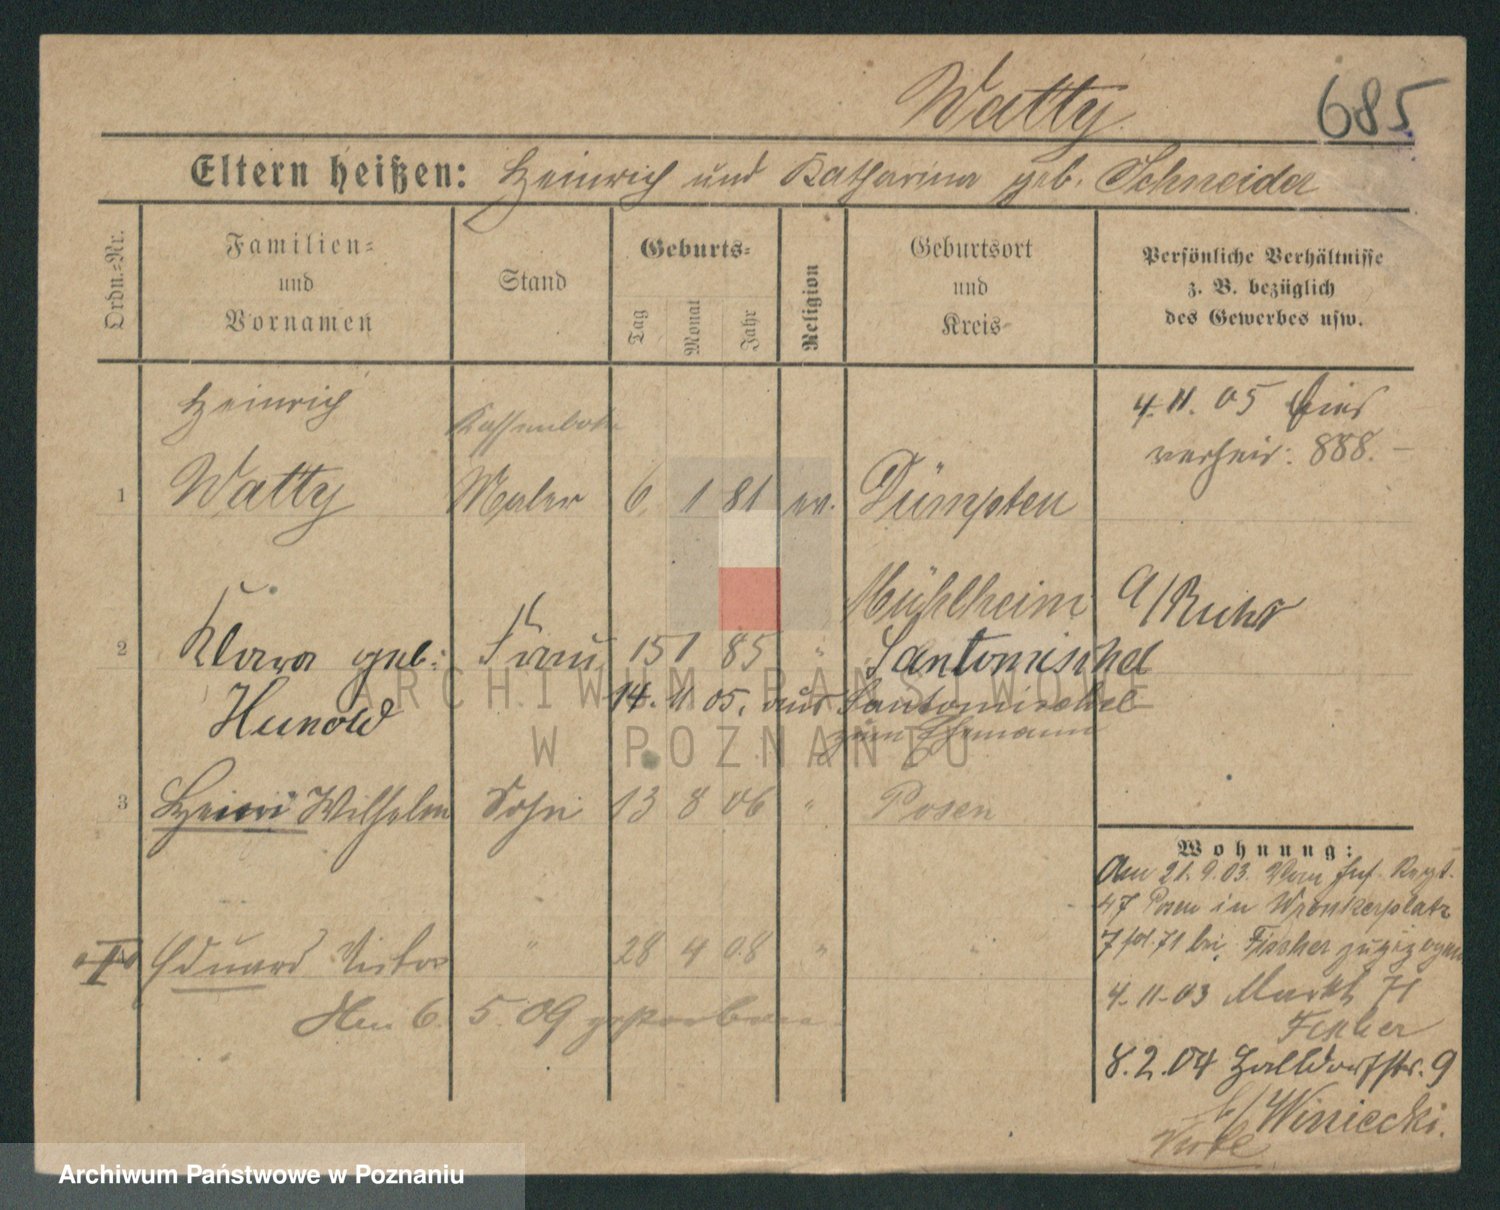 Watty
685
Eltern heißen: Heinrich und Katharina geb. Schneider
Ordn.-Nr.
Familien-
und
Vornamen
Stand
Geburts-
Tag
Monat
Jahr
Religion
Geburtsort
und
Kreis
Persönliche Verhältnisse
z. B. bezüglich
des Gewerbes usw.
Heinrich
Kassenbote
4. 11. 05 hier
verheir: 888.
1 Watty Maler 6. 1 81 ev. Dümpten
Mühlheim a/Ruhr
2 Klara geb. Frau 15 1 85 " Santomischel
Hunold
14. 11 05. aus Santomischel
zum Ehemann
3 Heinri Wilhelm Sohn 13 8 06 " Posen
Wohnung:
Am 21. 9. 03. Vom Inf. Regt.
47 Posen in Wronkerplatz
7 bei Fischer zugezogen
4 Eduard Victor " 28 4 08 " "
4. 11. 03 Markt 71
Fischer
Am 6. 5. 09 gestorben
8. 2. 04 Halldorfstr. 9
b/ Winiecki.
ARCHIWUM PAŃSTWOWE
W POZNANIU
Archiwum Państwowe w Poznaniu